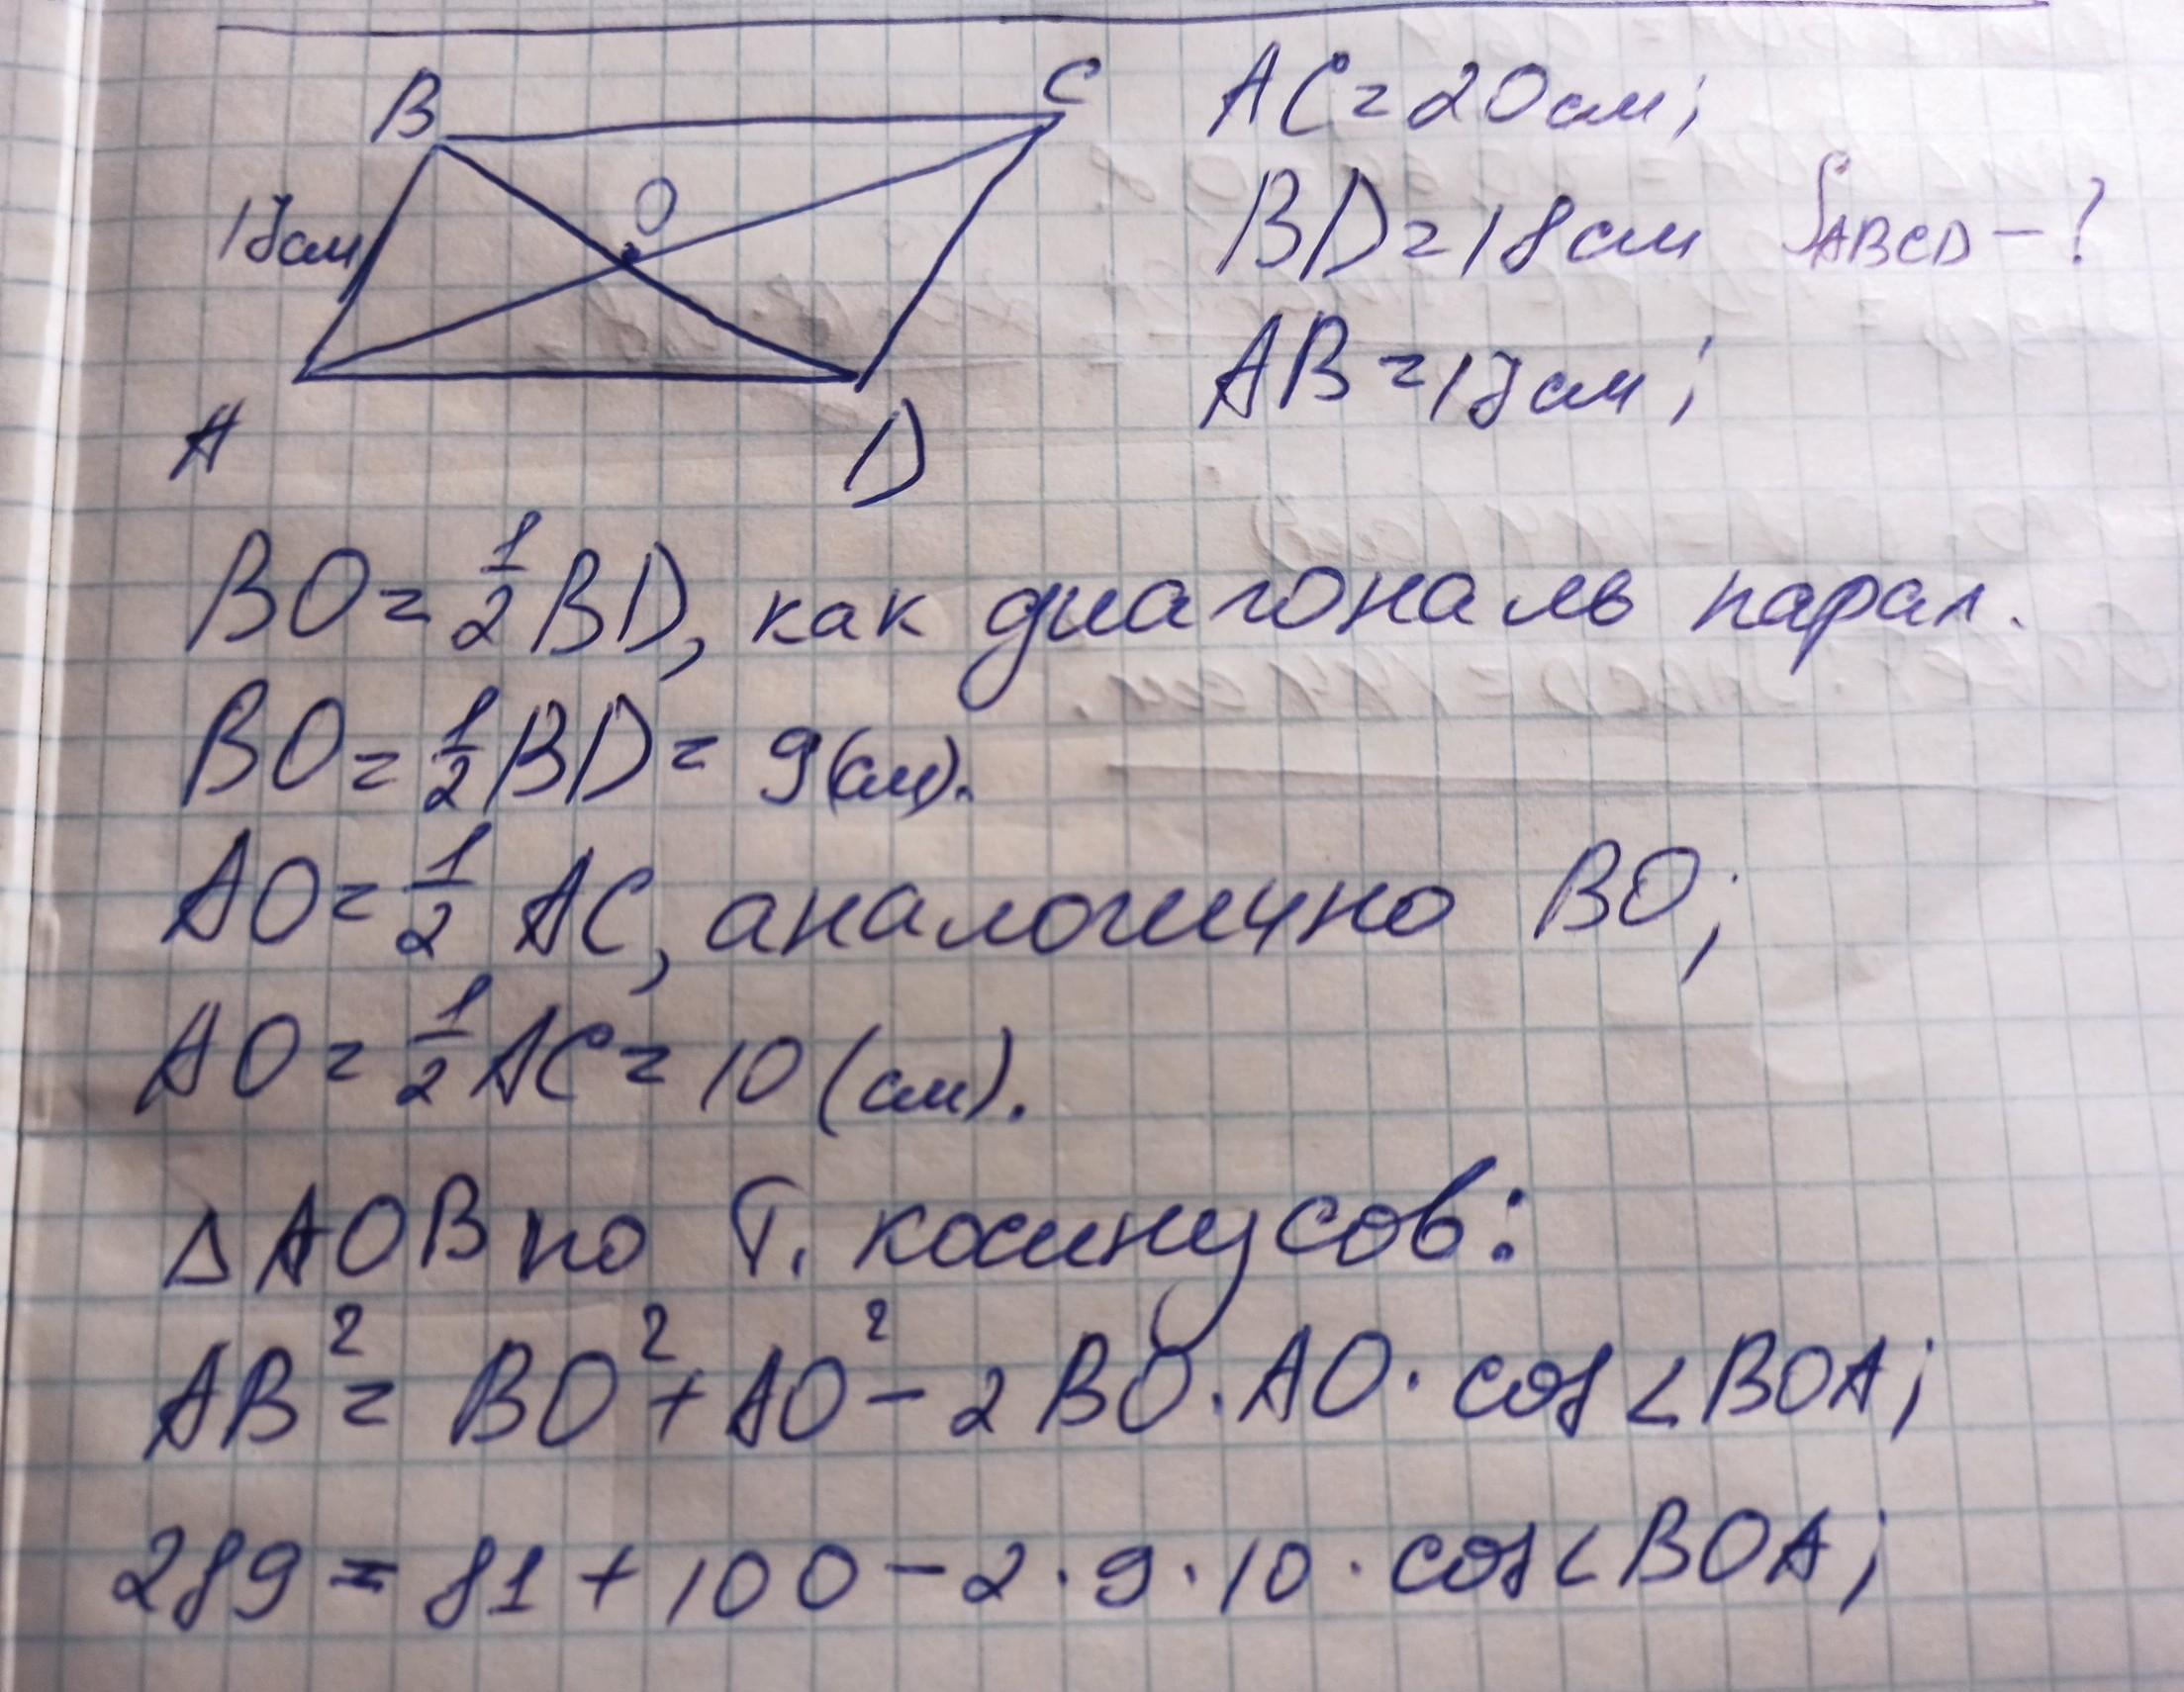 B C AC = 20 см;
17 см O BD = 18 см S ABCD – ?
AB = 17 см;
A D
BO = 1/2 BD, как диагональ парал.
BO = 1/2 BD = 9 (см).
AO = 1/2 AC, аналогично BO;
AO = 1/2 AC = 10 (см).
△ AOB по т. косинусов:
AB² = BO² + AO² – 2 BO · AO · cos ∠BOA;
289 = 81 + 100 – 2 · 9 · 10 · cos ∠BOA;